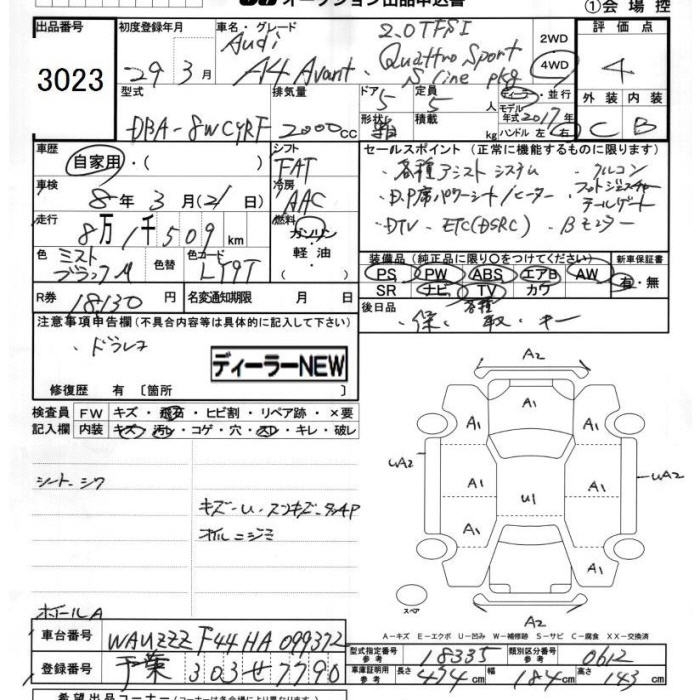 オークション出品申込書
①会場控
出品番号
3023
初度登録年月
29年 3月
車名・グレード
Audi
A4 Avant
2.0TFSI
Quattro Sport
S line pkg
2WD
4WD
評価点
4
外装 内装
C B
型式
DBA-8WCYRF
排気量
2000cc
ドア
5
定員
5人
形状
積載
kg
ディーラー・並行
モデル年式 2017年
ハンドル 左 右
車歴
自家用・( )
車検
8年 3月(21日)
走行
8万1千509km
シフト
FAT
冷房
AAC
燃料
ガソリン
軽油
( )
色
ミスト
ブラックM
色替
色コード
LY9T
R券
18130円
名変通知期限 月 日
セールスポイント (正常に機能するものに限ります)
・各種アシストシステム ・クルコン
・D.P席パワーシート/ヒーター
テールゲート
・DTV ・ETC(DSRC) ・Bモニター
装備品 (純正品に限り○をつけてください)
新車保証書
PS PW ABS エアB AW
SR ナビ TV カワ
有・無
後日品
・保 ・取 ・キー
各種
注意事項申告欄 (不具合内容等は具体的に記入して下さい)
・ドラレコ
ディーラーNEW
修復歴 有 [箇所 ]
検査員記入欄
FW キズ・飛石・ヒビ割・リペア跡・×要
内装 キズ・汚レ・コゲ・穴・スレ・キレ・破レ
シートシワ
オイルニジミ
ホイールA
A2
A1
A1 A1
UA2 A1 U1 A1 UA2
A1 A1
A1
スペア
A2
A-キズ E-エクボ U-凹み W-補修跡 S-サビ C-腐食 XX-交換済
車台番号
WAUZZZF44HA099372
登録番号
千葉 303 せ 7790
型式指定番号 参考
18335
類別区分番号 参考
0612
車庫証明用 参考
長さ 474cm 幅 184cm 高さ 143cm
希望出品コーナー